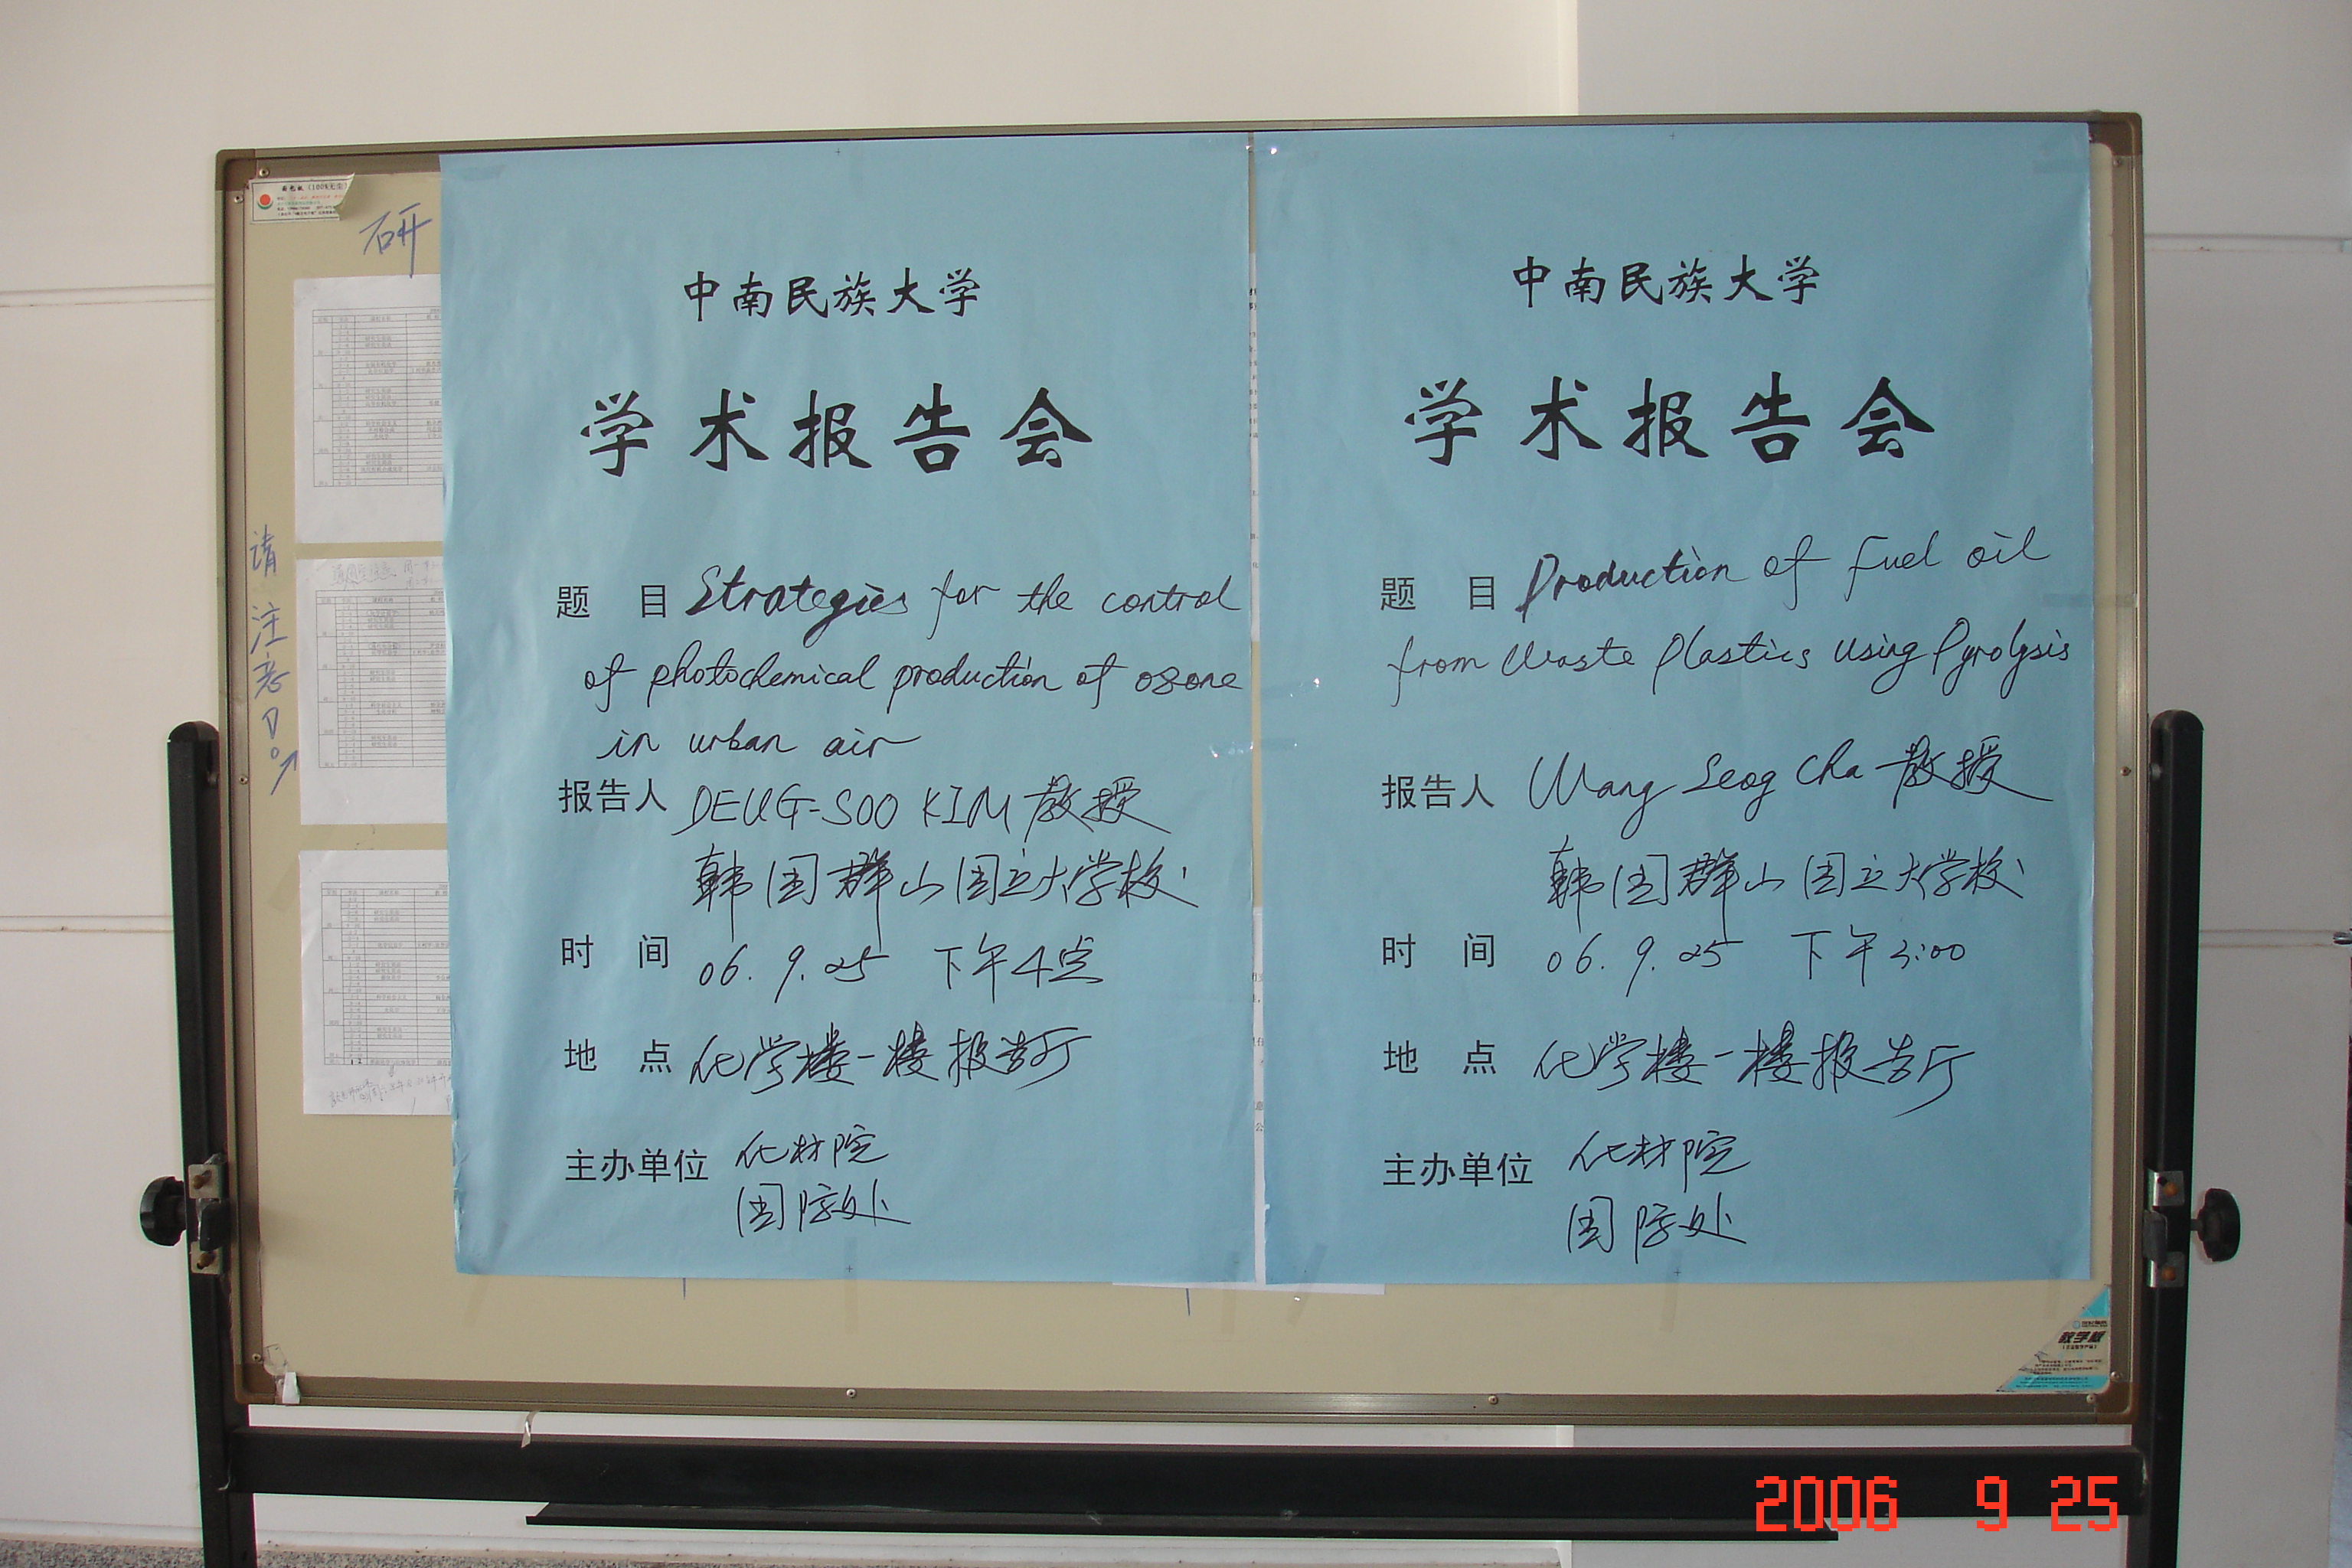 研
请注意!
中南民族大学
学术报告会
题 目 Strategies for the control
of photochemical production of ozone
in urban air
报告人 DEUG-SOO KIM 教授
韩国群山国立大学校
时 间 06.9.25 下午4点
地 点 化学楼一楼报告厅
主办单位 化材院
国际处
中南民族大学
学术报告会
题 目 Production of Fuel oil
from Waste Plastics Using Pyrolysis
报告人 Wang Seog Cha 教授
韩国群山国立大学校
时 间 06.9.25 下午3:00
地 点 化学楼一楼报告厅
主办单位 化材院
国际处
教学板
2006 9 25